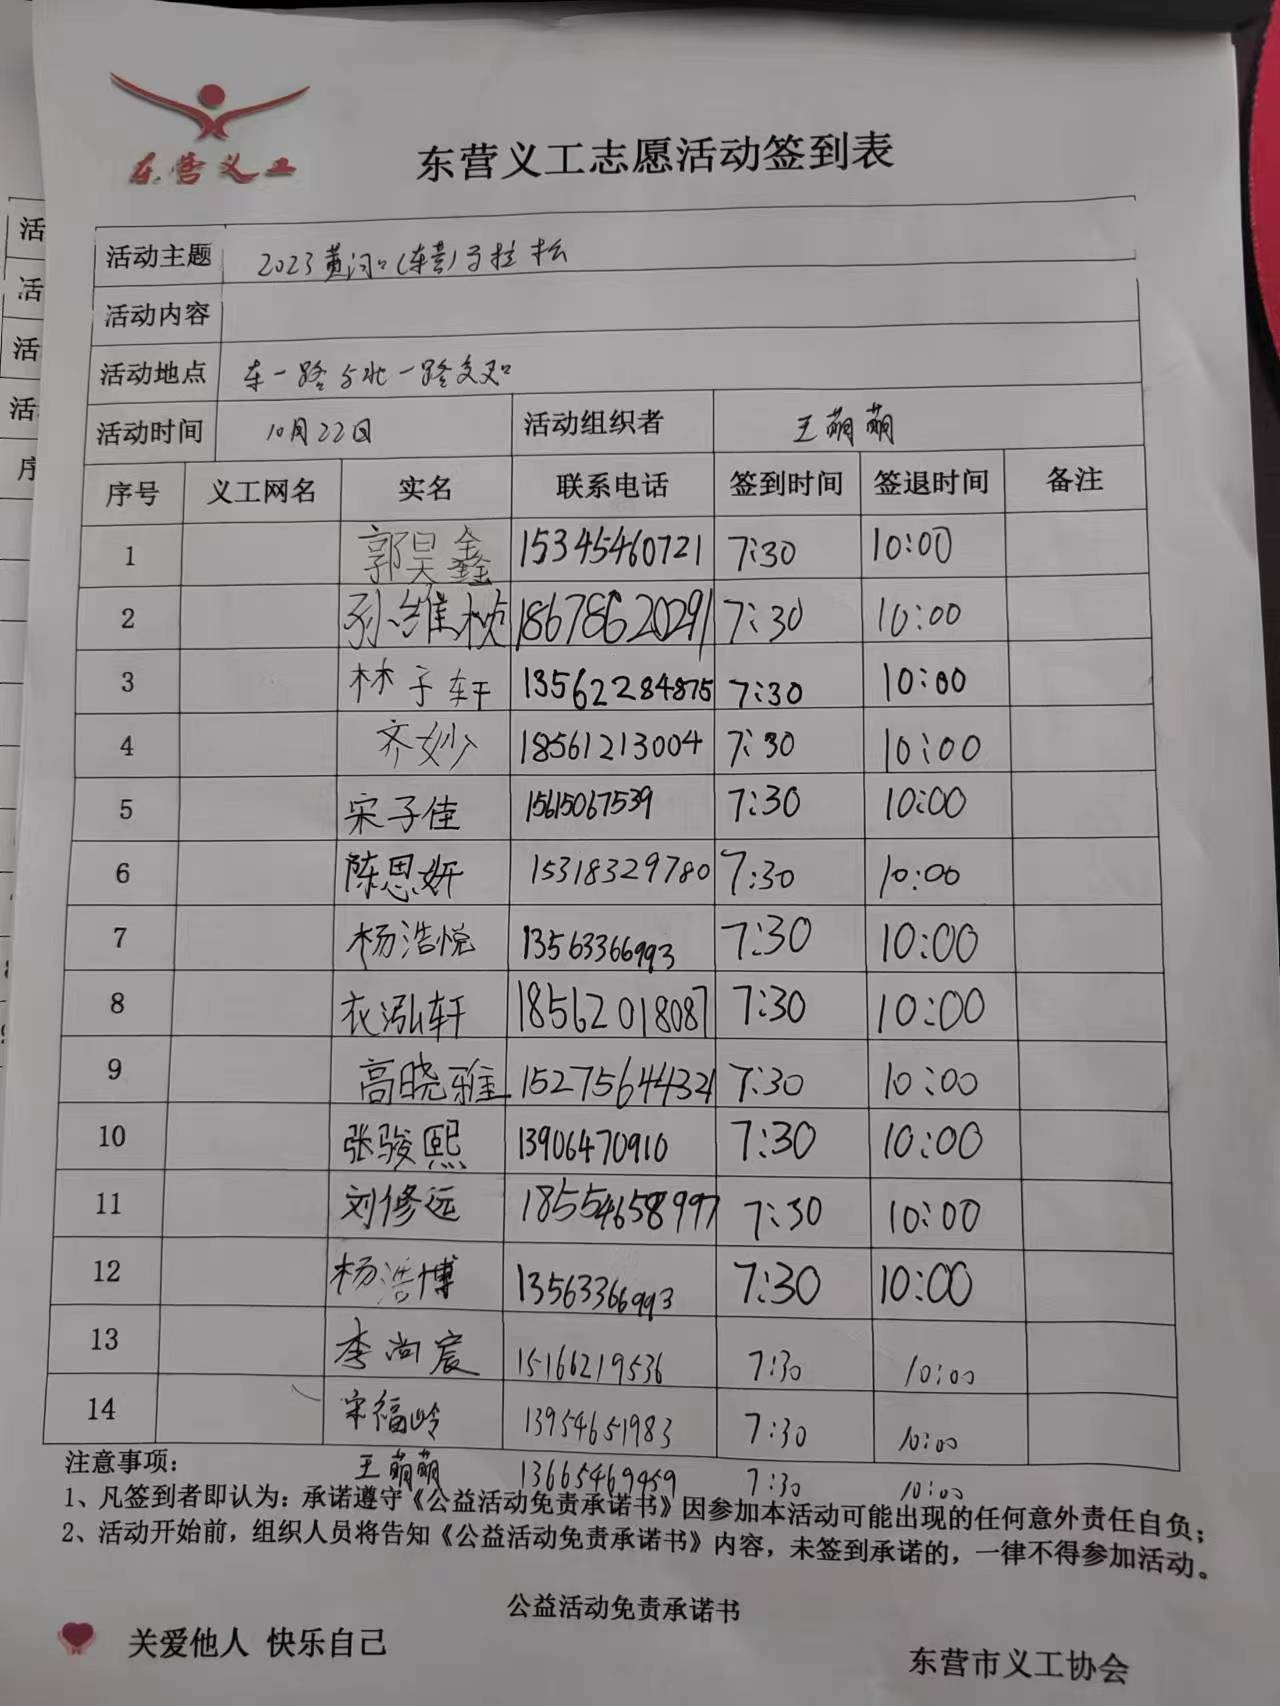 东营义工
东营义工志愿活动签到表
活动主题 2023黄河口(东营)马拉松
活动内容
活动地点 东一路与北一路交叉口
活动时间 10月22日 活动组织者 王萌萌
序号 义工网名 实名 联系电话 签到时间 签退时间 备注
1 郭昊鑫 15345460721 7:30 10:00
2 孙维桢 18678620291 7:30 10:00
3 林子轩 13562284875 7:30 10:00
4 齐妙 18561213004 7:30 10:00
5 宋子佳 15615067539 7:30 10:00
6 陈思妍 15318329780 7:30 10:00
7 杨浩悦 13563366993 7:30 10:00
8 衣泓轩 18562018087 7:30 10:00
9 高晓雅 15275644321 7:30 10:00
10 张骏熙 13906470910 7:30 10:00
11 刘修远 18554658997 7:30 10:00
12 杨浩博 13563366993 7:30 10:00
13 李尚宸 15166219536 7:30 10:00
14 宋福岭 13954651983 7:30 10:00
王萌萌 13665469459 7:30 10:00
注意事项:
1、凡签到者即认为:承诺遵守《公益活动免责承诺书》因参加本活动可能出现的任何意外责任自负;
2、活动开始前,组织人员将告知《公益活动免责承诺书》内容,未签到承诺的,一律不得参加活动。
公益活动免责承诺书
关爱他人 快乐自己
东营市义工协会